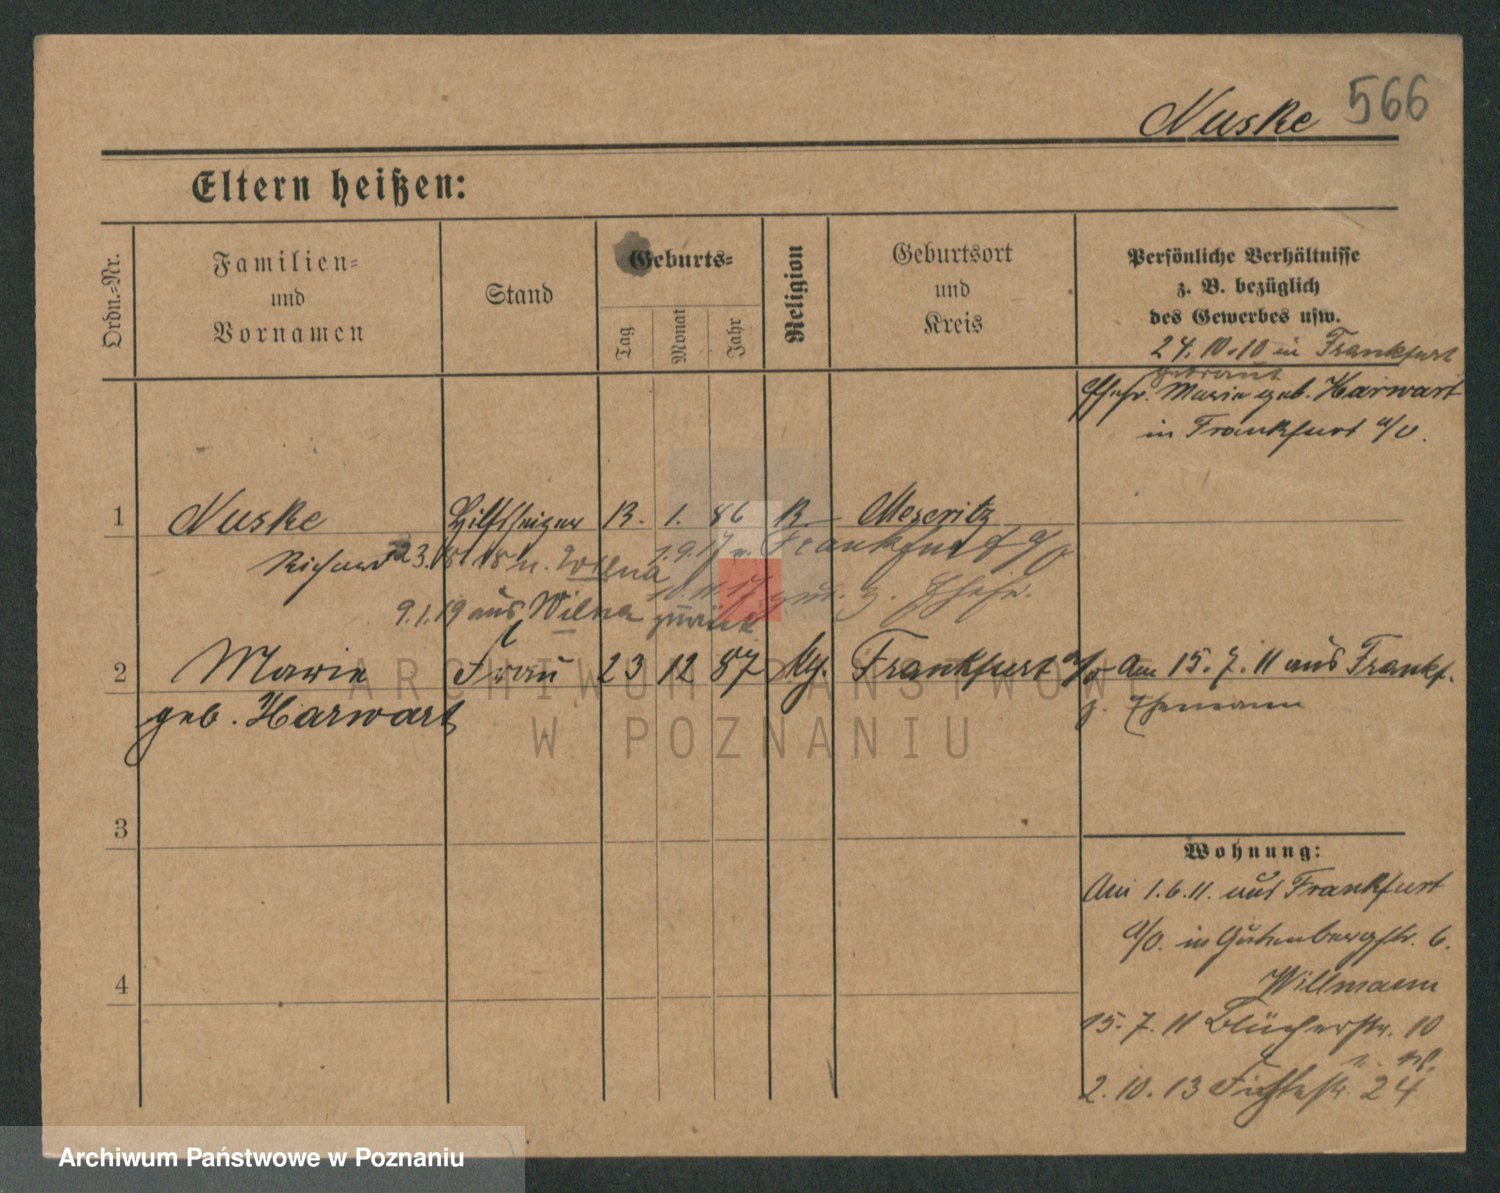 Nuske 566
Eltern heißen:
Ordn.-Nr.
Familien-
und
Vornamen
Stand
Geburts-
Tag
Monat
Jahr
Religion
Geburtsort
und
Kreis
Persönliche Verhältnisse
z. B. bezüglich
des Gewerbes usw.
24. 10. 10 in Frankfurt
getraut
Ehefr. Marie geb. Harwart
in Frankfurt a/O.
1 Nuske Hilfsheizer 13. 1. 86 K Meseritz
Richard 23.8.18 n. Wilna 1.9.17 n. Frankfurt a/O
9.1.19 aus Wilna zurück 10.11.17 zur. z. Ehefr.
2 Marie Frau 23 12 87 Frankfurt a/O Am 15. 7. 11 aus Frankf.
geb. Harwart z. Ehemann
3
Wohnung:
Am 1. 6. 11. aus Frankfurt
a/O. in Gutenbergstr. 6.
Willmann
4
15. 7. 11 Blücherstr. 10
2. 10. 13 Fichtestr. 24
ARCHIWUM PAŃSTWOWE
W POZNANIU
Archiwum Państwowe w Poznaniu